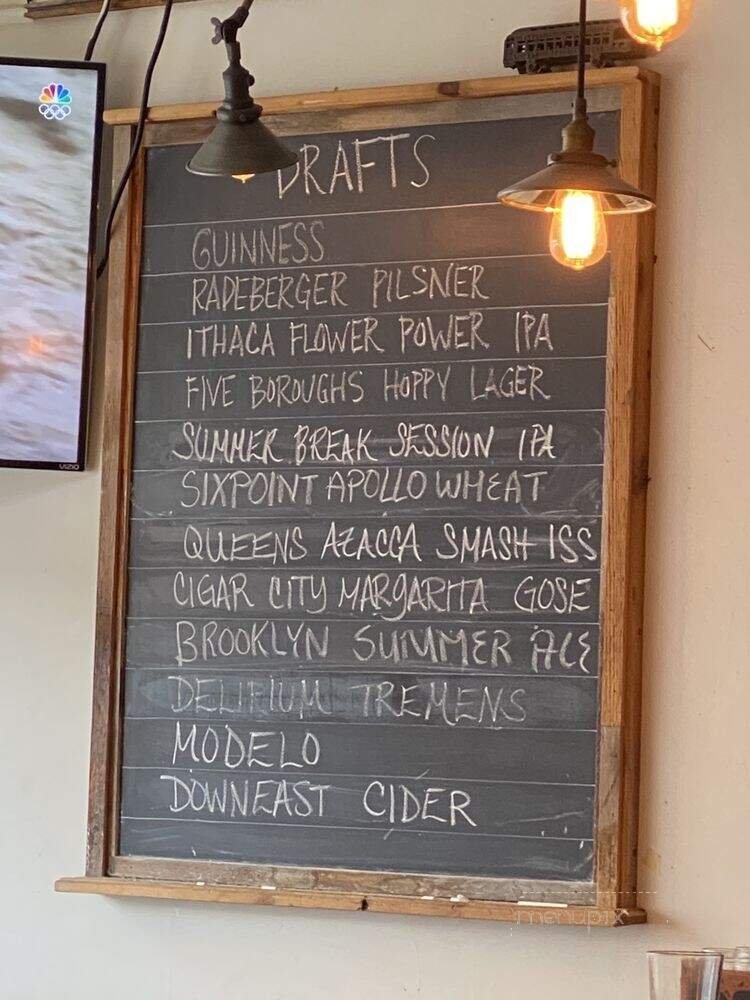 DRAFTS
GUINNESS
RADEBERGER PILSNER
ITHACA FLOWER POWER IPA
FIVE BOROUGHS HOPPY LAGER
SUMMER BREAK SESSION IPA
SIXPOINT APOLLO WHEAT
QUEENS AZACCA SMASH ISS
CIGAR CITY MARGARITA GOSE
BROOKLYN SUMMER ALE
DELIRIUM TREMENS
MODELO
DOWNEAST CIDER
VIZIO
menupix